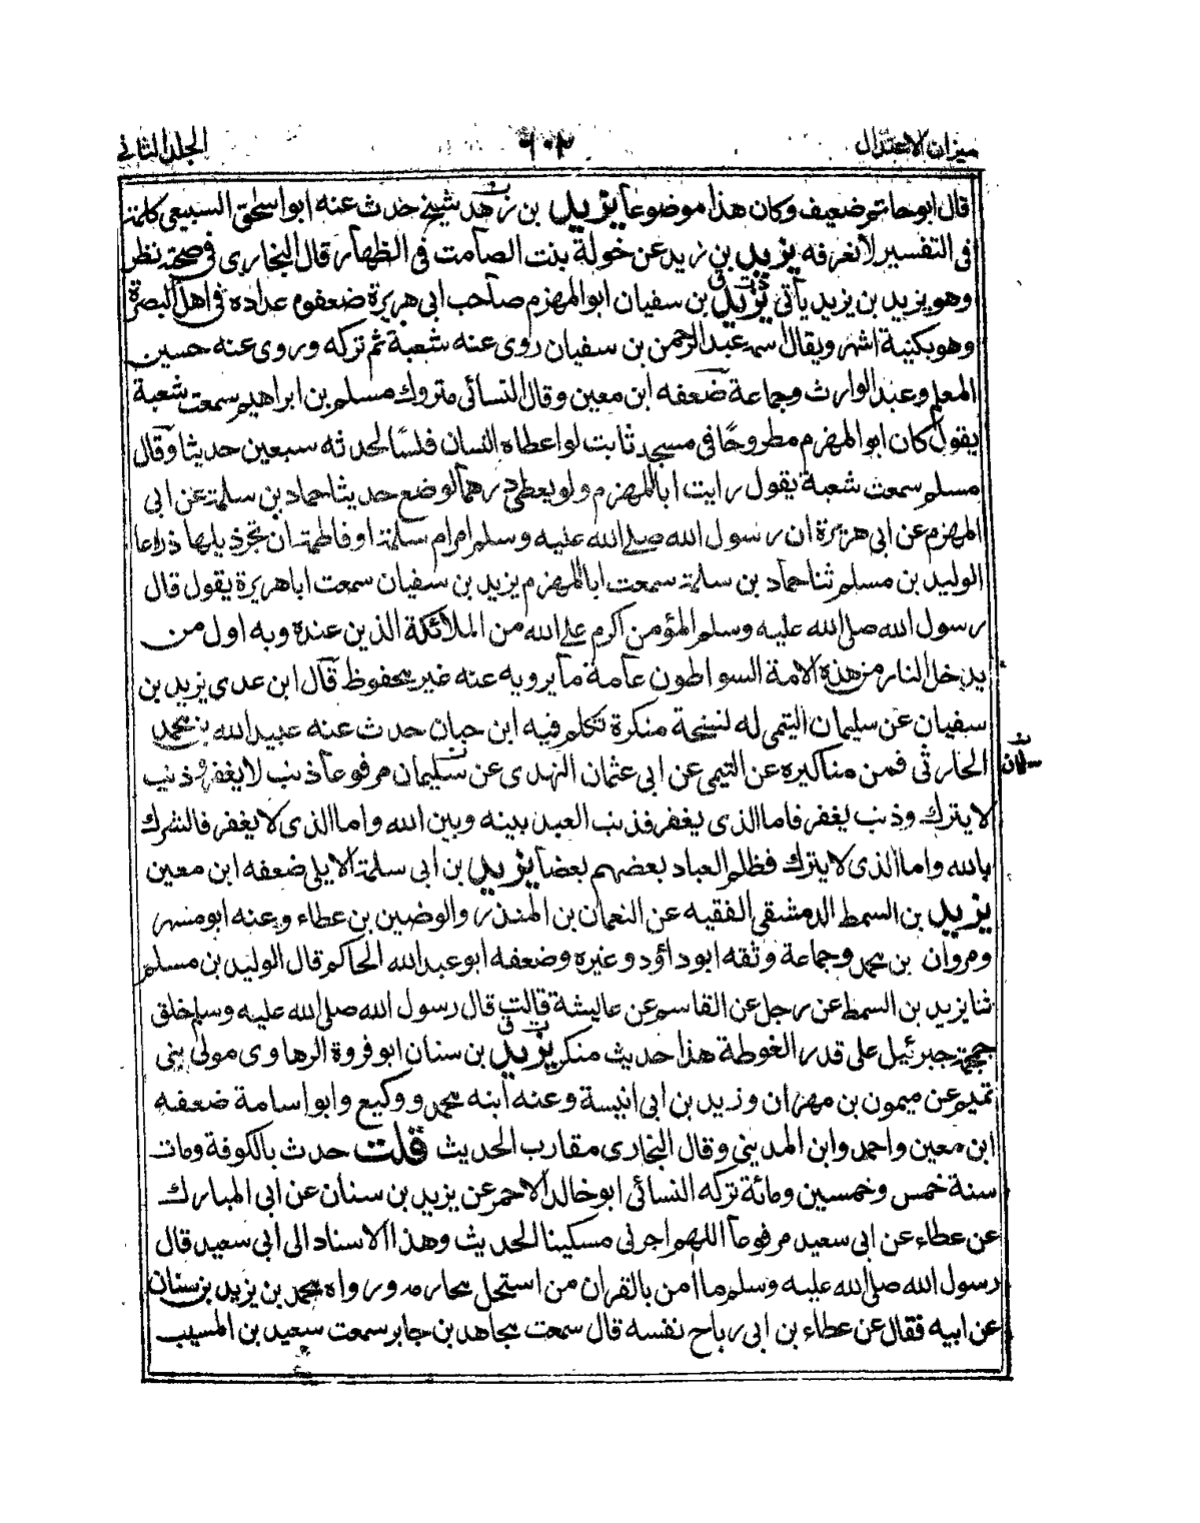 ميزان الاعتدال
٦٠٢
الجلد الثاني
قال ابو حاتم ضعيف وكان هذا موضوعا يزيد بن زهد شيخ حدث عنه ابو اسحق السبيعي كلمة
في التفسير لا نعرفه يزيد بن زيد عن خولة بنت الصامت في الظهار قال البخاري في صحته نظر
وهو يزيد بن يزيد يأتي يزيد بن سفيان ابو المهزم صاحب ابي هريرة ضعفوه عداده في اهل البصرة
وهو بكنيته اشهر ويقال اسمه عبد الرحمن بن سفيان روى عنه شعبة ثم تركه وروى عنه حسين
المعلم وعبد الوارث وجماعة ضعفه ابن معين وقال النسائي متروك مسلم بن ابراهيم سمعت شعبة
يقول كان ابو المهزم مطروحا في مسجد ثابت لو اعطاه انسان فلسا لحدثه سبعين حديثا وقال
مسلم سمعت شعبة يقول رايت ابا المهزم ولو يعطى درهما لوضع حديثا حماد بن سلمة عن ابي
المهزم عن ابي هريرة ان رسول الله صلى الله عليه وسلم امر ام سلمة او فاطمة ان تجر ذيلها ذراعا
الوليد بن مسلم ثنا حماد بن سلمة سمعت ابا المهزم يزيد بن سفيان سمعت ابا هريرة يقول قال
رسول الله صلى الله عليه وسلم المؤمن اكرم على الله من الملائكة الذين عنده وبه اول من
يدخل النار من هذه الامة السواطون عامة ما يرويه عنه غير محفوظ قال ابن عدي يزيد بن
سفيان عن سليمان التيمي له نسخة منكرة تكلم فيه ابن حبان حدث عنه عبيد الله بن محمد
الحارثي فمن مناكيره عن التيمي عن ابي عثمان النهدي عن سليمان مرفوعا ذنب لا يغفر وذنب
سلمان
لا يترك وذنب يغفر فاما الذى يغفر فذنب العبد بينه وبين الله واما الذى لا يغفر فالشرك
بالله واما الذى لا يترك فظلم العباد بعضهم بعضا يزيد بن ابي سلمة الايلي ضعفه ابن معين
يزيد بن السمط الدمشقي الفقيه عن النعمان بن المنذر والوضين بن عطاء وعنه ابو مسهر
ومروان بن محمد وجماعة وثقه ابو داؤد وغيره وضعفه ابو عبد الله الحاكم قال الوليد بن مسلم
ثنا يزيد بن السمط عن رجل عن القاسم عن عايشة قالت قال رسول الله صلى الله عليه وسلم خلق
جمجمة جبرئيل على قدر الغوطة هذا حديث منكر يزيد بن سنان ابو فروة الرهاوى مولى بني
تميم عن ميمون بن مهران وزيد بن ابى انيسة وعنه ابنه محمد ووكيع وابو اسامة ضعفه
ابن معين واحمد وابن المديني وقال البخارى مقارب الحديث قلت حدث بالكوفة ومات
سنة خمس وخمسين ومائة تركه النسائي ابو خالد الاحمر عن يزيد بن سنان عن ابي المبارك
عن عطاء عن ابي سعيد مرفوعا اللهم مسكينا الحديث وهذا الاسناد الى ابي سعيد قال
رسول الله صلى الله عليه وسلم ما امن بالقران من استحل محارمه ورواه محمد بن يزيد بن سنان
عن ابيه فقال عن عطاء بن ابي رباح نفسه قال سمعت مجاهد بن جابر سمعت سعيد بن المسيب